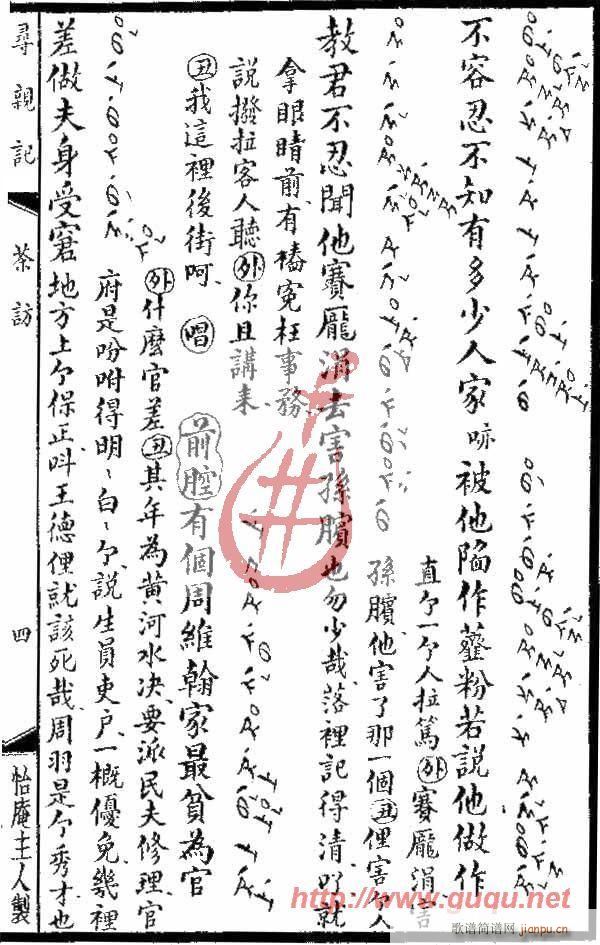 不容忍不知有多少人家㖸被他陷作虀粉若說他做作
直个一个人拉篤外賽龐涓害
孫臏他害了那一個丑俚害个人
教君不忍聞他賽龐涓去害孫臏也勿少哉落裡記得清吖就
拿眼睛前有樁寃枉事務
說撥拉客人聽外你且講來
丑我這裡後街呵唱前腔有個周維翰家最貧為官
外什麼官差丑其年為黃河水決要派民夫修理官
府是吩咐得明〻白〻个說生員吏户一概優免幾裡
差做夫身受窘地方上个保正叫王德俚就該死哉周羽是个秀才也
尋親記
茶訪
四
怡庵主人製
http://www.guqu.net
歌谱简谱网
jianpu.cn